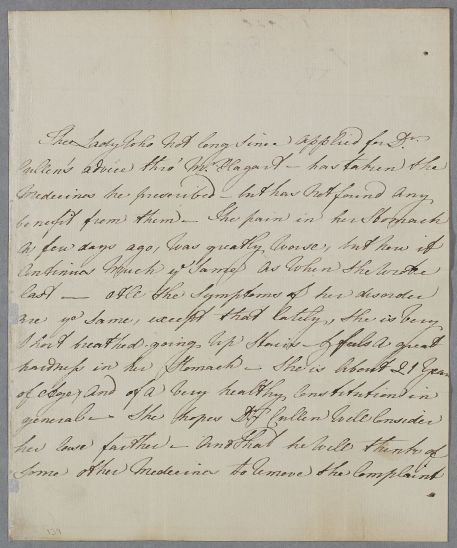 The Lady who not long since applied for Dr.
Cullen's advice thro' Mr. Hagart — has taken the
Medecines he prescribed — but has not found any
benefit from them — The pain in her Stomach
a few days ago, was greatly worse, but now it
Continues much ye Same as when She wrote
last — All the Symptoms of her disorder
are ye same, except that lately, She is very
Short breathed going up Stairs — & feels a great
hardness in her Stomach — She is about 21 Years
of Age, and of a very healthy Constitution in
general — She hopes Dr. Cullen will Consider
her case farther — and that he will think of
Some other Medecines to remove the Complaint